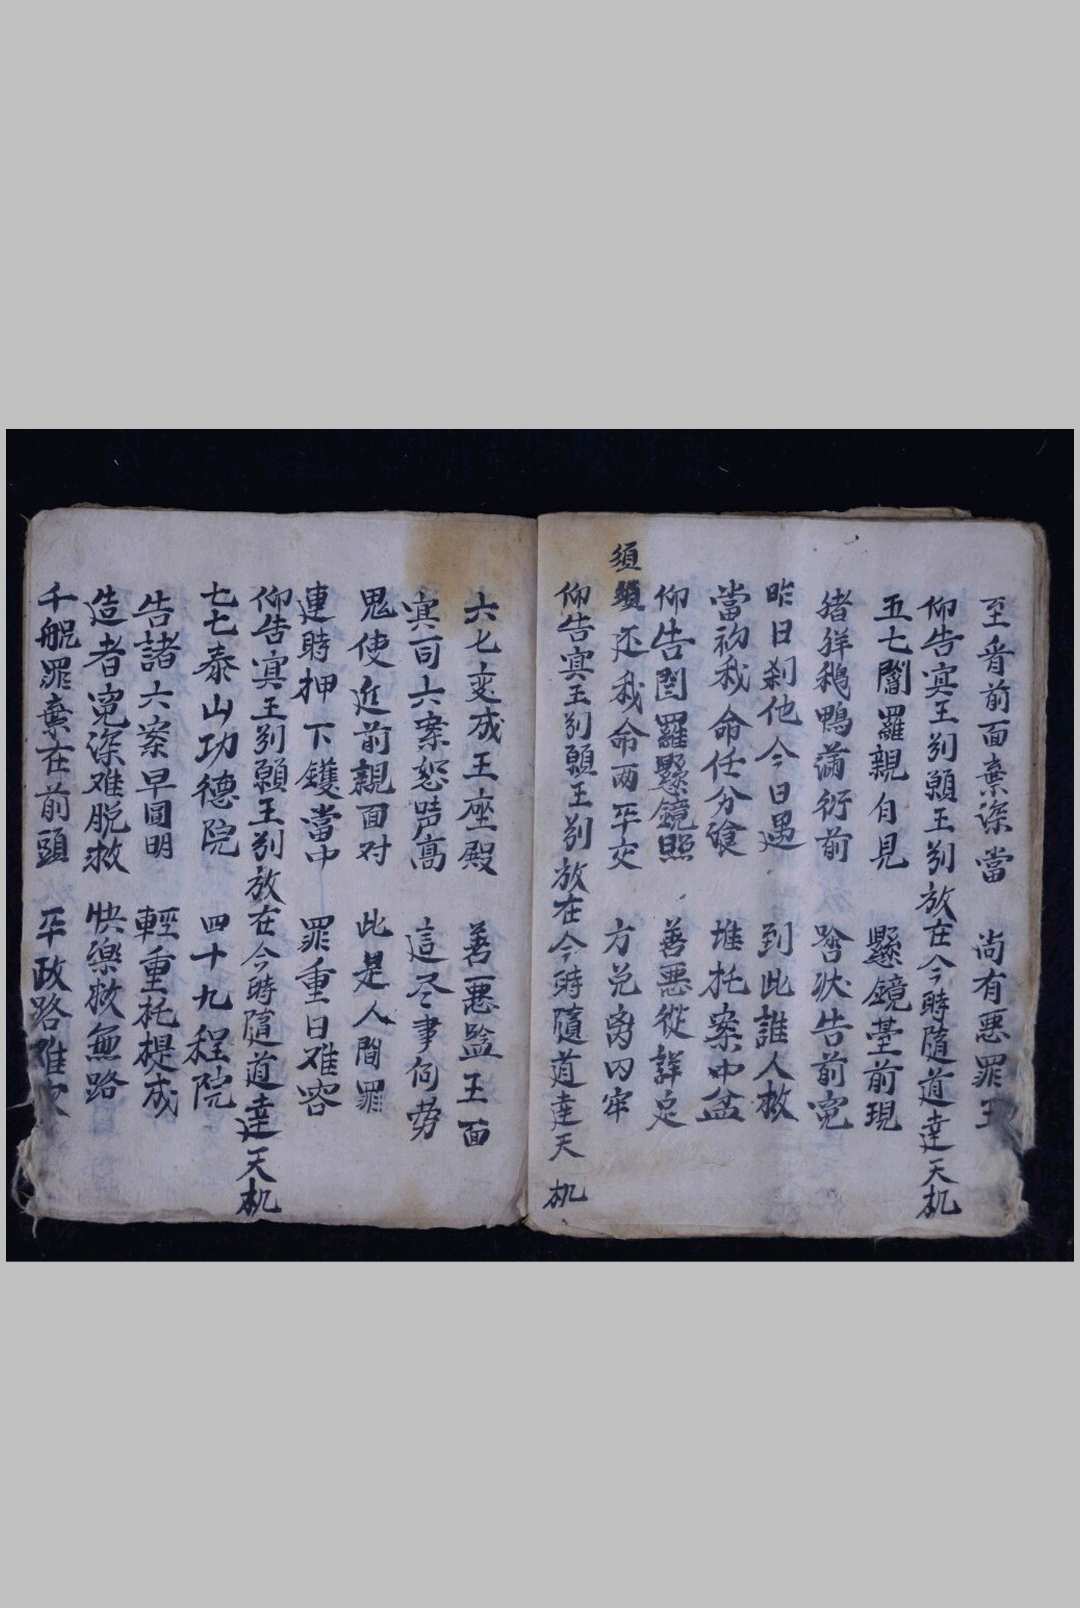 至者前面棄深當 尚有惡罪王
仰告㝠王別願王別放在今時隨道達天机
五七閻羅親自見 懸鏡臺前現
猪羊鵝鴨滿衍前 啥状告前寃
昨日刹他今日遇 到此誰人救
當初我命任分飡 堆托案中盆
仰告閻羅懸鏡照 善惡從詳足
須還我命兩平交 方兑內牢
仰告㝠王別願王別放在今時隨道達天机
六七变成王座殿 善惡監王面
㝠司六案怒嵩 這尽事何劳
鬼使近前親面对 此是人間罪
連時押下鑊當中 罪重日难容
仰告㝠王別願王別放在今時隨道達天机
七七泰山功德院 四十九程院
告諸六案早圓明 輕重托提成
造者寃深难脱救 快樂救無路
千般罪棄在前頭 平政路难